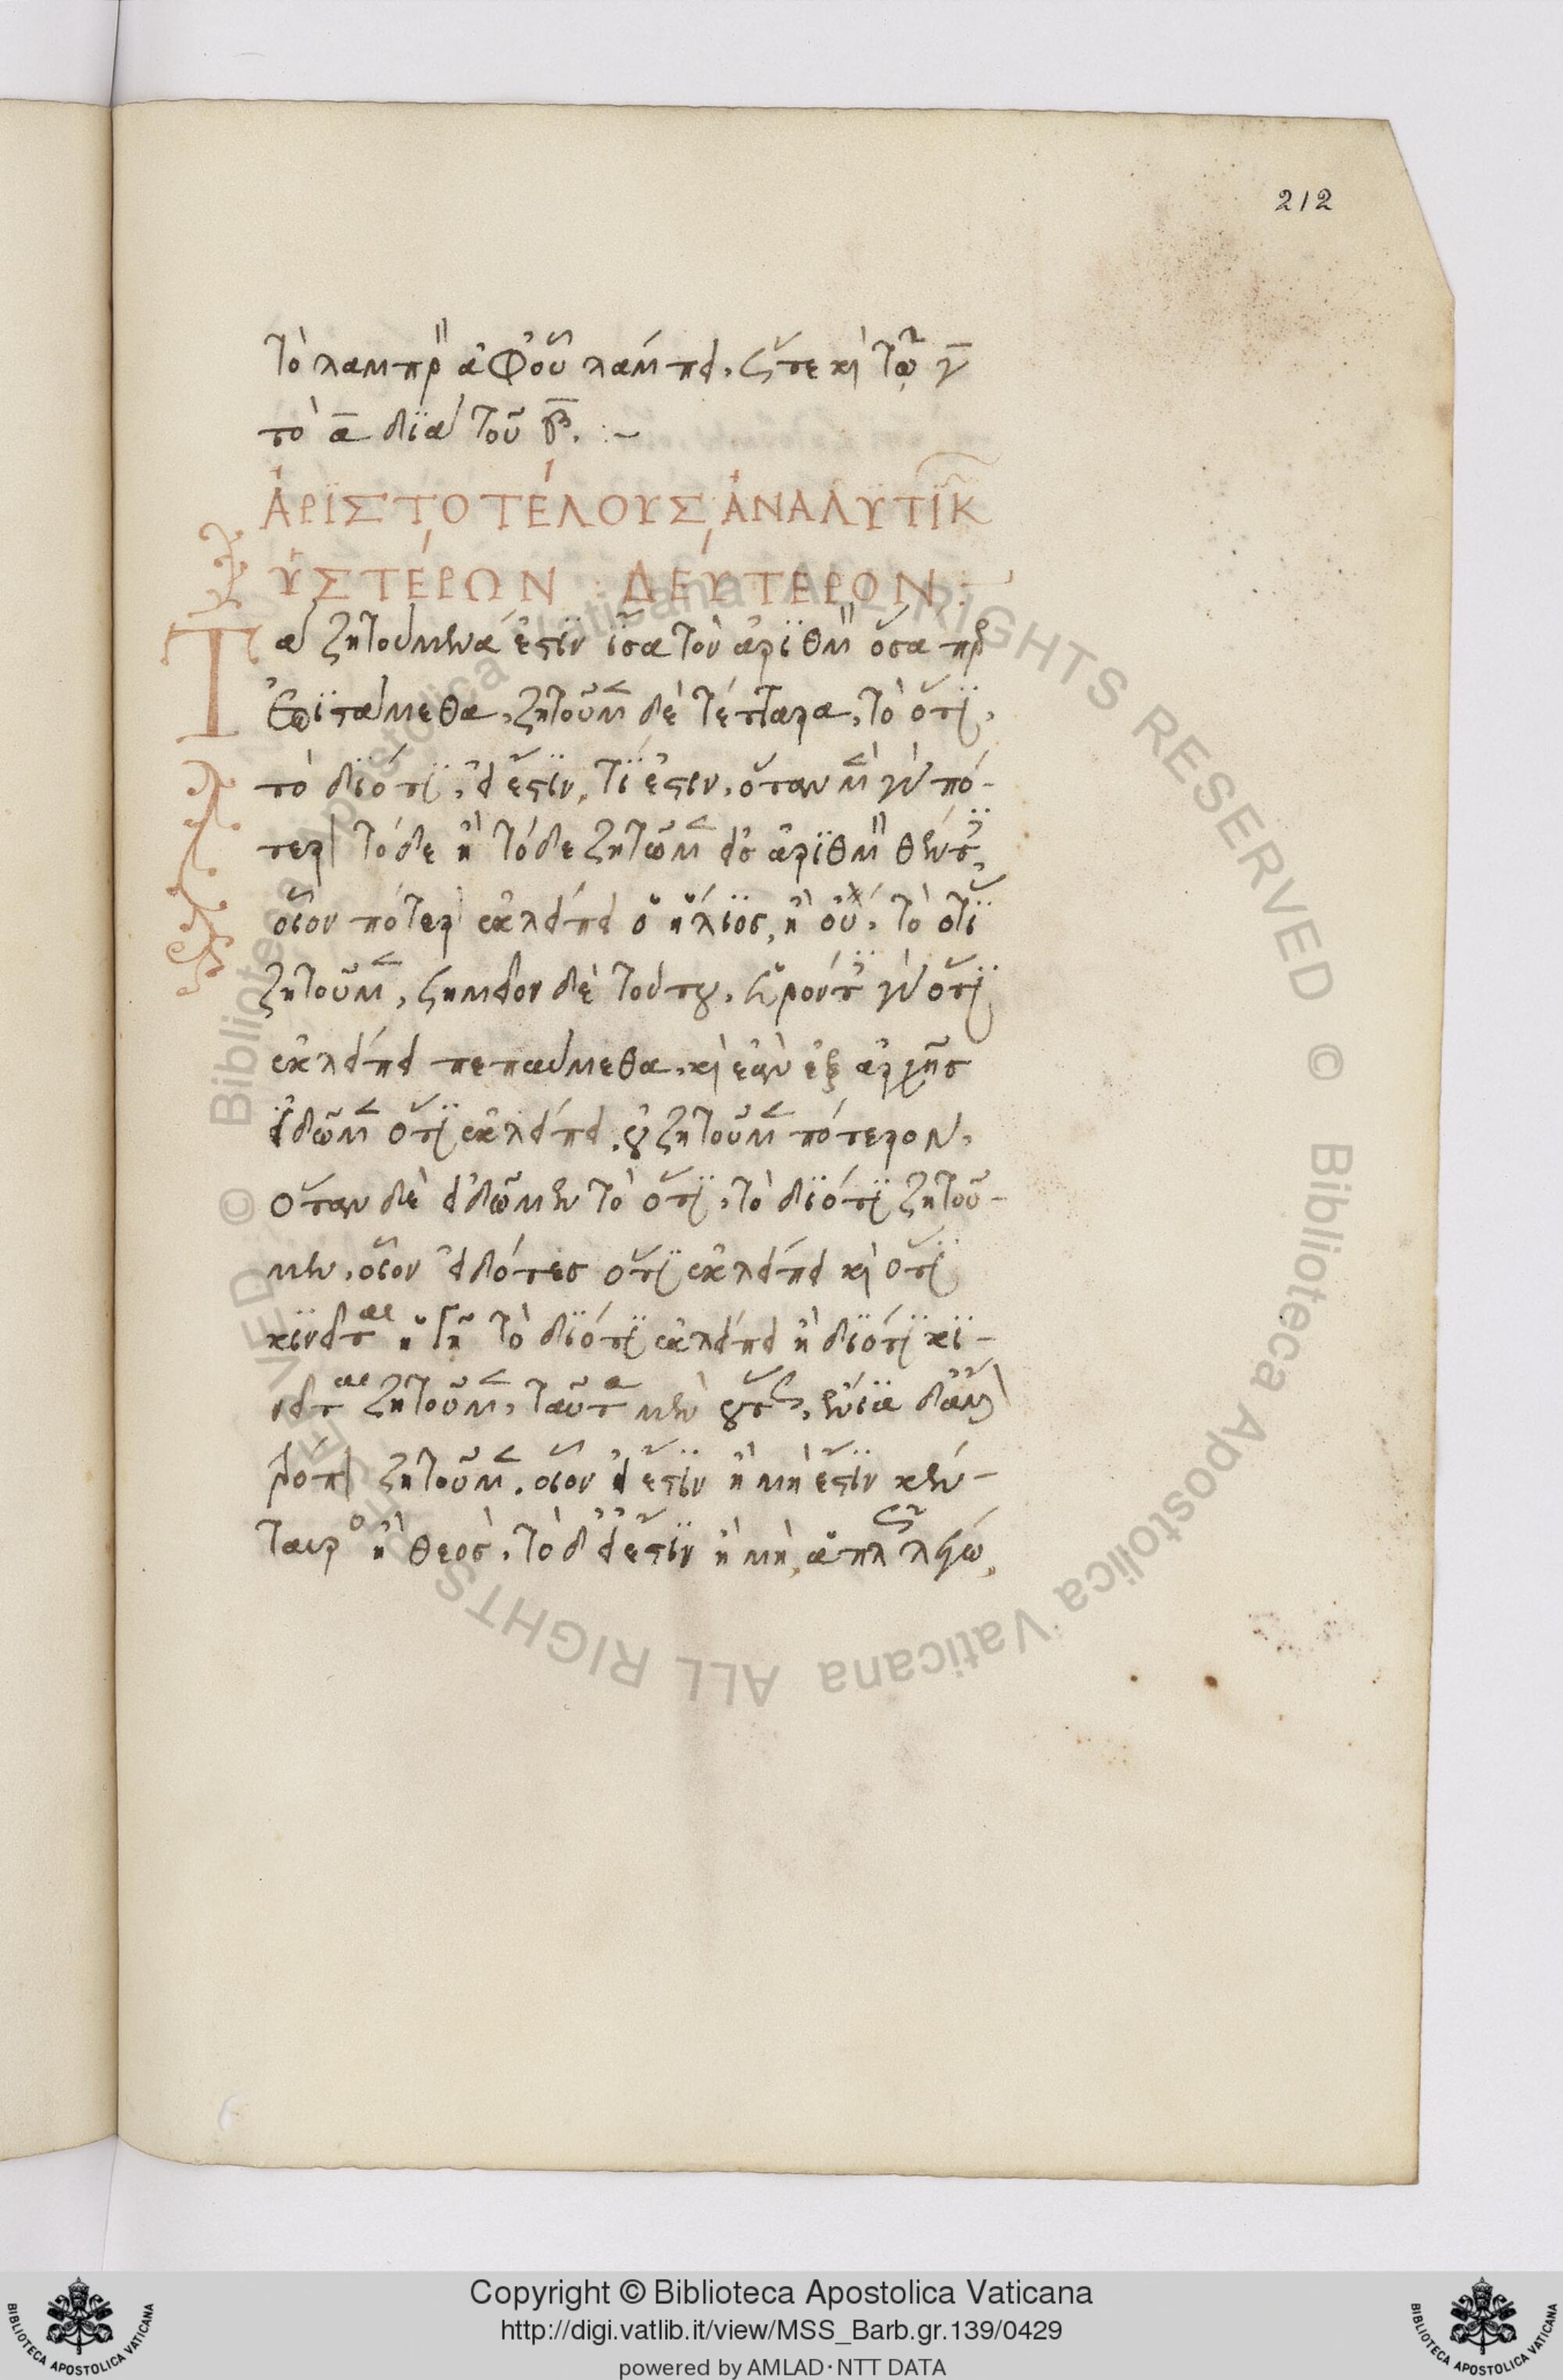 212
τὸ λαμπρὸν ἀφ' οὗ λάμπει, ὥστε καὶ τῷ γ̅
τὸ α̅ διὰ τοῦ β̅. :~
ἈΡΙΣΤΟΤΈΛΟΥΣ ἈΝΑΛΥΤΙΚῶν
ὙΣΤΈΡΩΝ ΔΕΎΤΕΡΟΝ :~
Τὰ ζητούμενά ἐστιν ἴσα τὸν ἀριθμὸν ὅσαπερ
ἐπιστάμεθα, ζητοῦμεν δὲ τέτταρα, τὸ ὅτι,
τὸ διότι, εἰ ἔστιν, τί ἐστιν, ὅταν μὲν γὰρ πό-
τερον τόδε ἢ τόδε ζητῶμεν εἰς ἀριθμὸν θέντες,
οἷον πότερον ἐκλείπει ὁ ἥλιος, ἢ οὔ, τὸ ὅτι
ζητοῦμεν, σημεῖον δὲ τούτου, εὑρόντες γὰρ ὅτι
ἐκλείπει πεπαύμεθα, καὶ ἐὰν ἐξ ἀρχῆς
εἰδῶμεν ὅτι ἐκλείπει, οὐ ζητοῦμεν πότερον,
ὅταν δὲ εἰδῶμεν τὸ ὅτι, τὸ διότι ζητοῦ-
μεν, οἷον εἰδότες ὅτι ἐκλείπει καὶ ὅτι
κινεῖται ἡ γῆ τὸ διότι ἐκλείπει ἢ διότι κι-
νεῖται ζητοῦμεν, ταῦτα μὲν οὕτως, ἔνια δ' ἄλλον
τρόπον ζητοῦμεν, οἷον εἰ ἔστιν ἢ μὴ ἔστιν κέν-
ταυρος ἢ θεός, τὸ δ' εἰ ἔστιν ἢ μὴ, ἁπλῶς λέγω,
Copyright © Biblioteca Apostolica Vaticana
http://digi.vatlib.it/view/MSS_Barb.gr.139/0429
powered by AMLAD·NTT DATA
BIBLIOTECA APOSTOLICA VATICANA
BIBLIOTECA APOSTOLICA VATICANA
© Biblioteca Apostolica Vaticana ALL RIGHTS RESERVED © Biblioteca Apostolica Vaticana ALL RIGHTS RESERVED